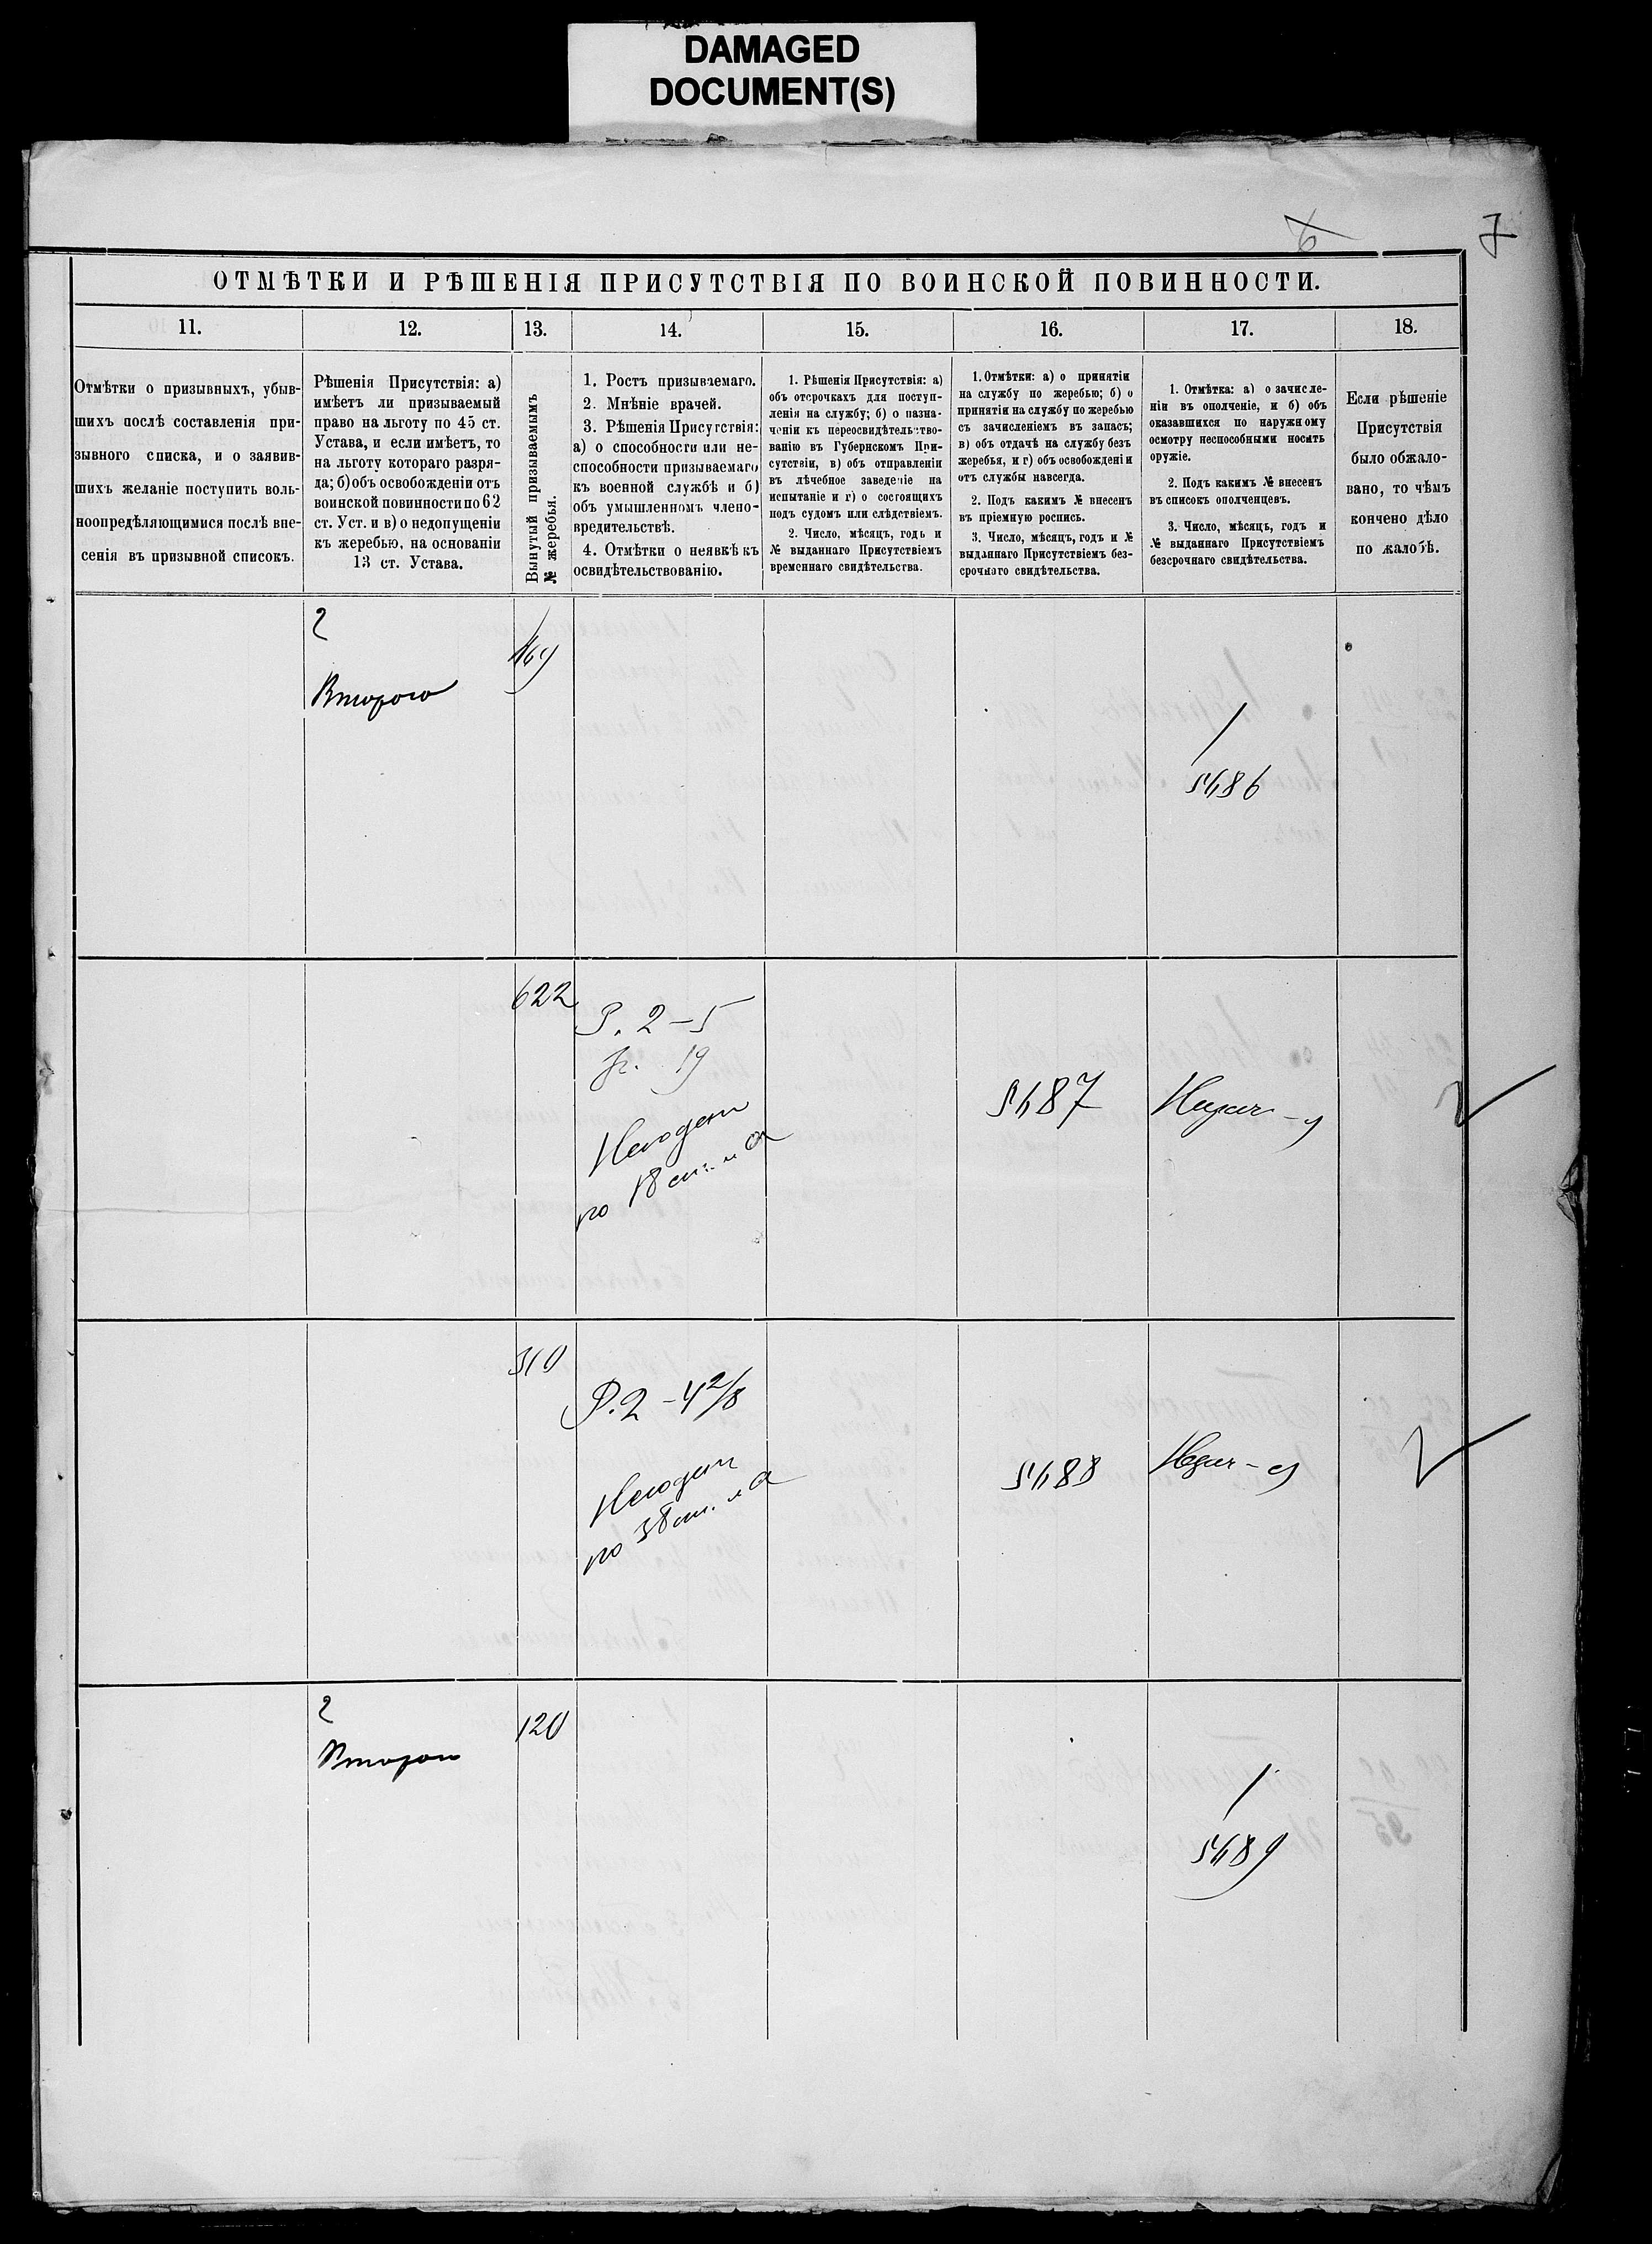 DAMAGED
DOCUMENT(S)
6 7
ОТМѢТКИ И РѢШЕНІЯ ПРИСУТСТВІЯ ПО ВОИНСКОЙ ПОВИННОСТИ.
11. 12. 13. 14. 15. 16. 17. 18.
Отмѣтки о призывныхъ, убыв-
шихъ послѣ составленія при-
зывного списка, и о заявив-
шихъ желаніе поступить воль-
ноопредѣляющимися послѣ вне-
сенія въ призывной списокъ.
Рѣшенія Присутствія: а)
имѣетъ ли призываемый
право на льготу по 45 ст.
Устава, и если имѣетъ, то
на льготу котораго разря-
да; б) объ освобожденіи отъ
воинской повинности по 62
ст. Уст. и в) о недопущеніи
къ жеребью, на основаніи
13 ст. Устава.
Вынутый призываемымъ
№ жеребья.
1. Ростъ призываемаго.
2. Мнѣніе врачей.
3. Рѣшенія Присутствія:
а) о способности или не-
способности призываемаго
къ военной службѣ и б)
объ умышленномъ члено-
вредительствѣ.
4. Отмѣтки о неявкѣ къ
освидѣтельствованію.
1. Рѣшенія Присутствія: а)
объ отсрочкахъ для поступ-
ленія на службу; б) о назна-
ченіи къ переосвидѣтельство-
ванію въ Губернскомъ При-
сутствіи, в) объ отправленіи
въ лѣчебное заведеніе на
испытаніе и г) о состоящихъ
подъ судомъ или слѣдствіемъ.
2. Число, мѣсяцъ, годъ и
№ выданнаго Присутствіемъ
временнаго свидѣтельства.
1. Отмѣтки: а) о принятіи
на службу по жеребью; б) о
принятіи на службу по жеребью
съ зачисленіемъ въ запасъ;
в) объ отдачѣ на службу безъ
жеребья, и г) объ освобожденіи
отъ службы навсегда.
2. Подъ какимъ № внесенъ
въ пріемную роспись.
3. Число, мѣсяцъ, годъ и №
выданнаго Присутствіемъ без-
срочнаго свидѣтельства.
1. Отмѣтка: а) о зачисле-
ніи въ ополченіе, и б) объ
оказавшихся по наружному
осмотру неспособными носить
оружіе.
2. Подъ какимъ № внесенъ
въ списокъ ополченцевъ.
3. Число, мѣсяцъ, годъ и
№ выданнаго Присутствіемъ
безсрочнаго свидѣтельства.
Если рѣшеніе
Присутствія
было обжало-
вано, то чѣмъ
кончено дѣло
по жалобѣ.
2
Второго
1
5486
622
Р. 2 – 5
19
Негоден
по 18 ст. л а
5487
310
Р. 2 – 4 2/8
Негоден
по 38 ст. л а
5488
2
Второго
120
1
5489